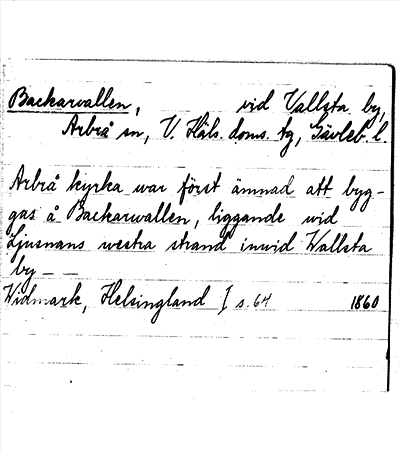 Backarvallen, vid Vallsta by,
Arbrå sn, V. Häls. doms. tg, Gävleb. l.
Arbrå kyrka war först ämnad att byg-
gas å Backarwallen, liggande wid
Ljusnans westra strand inwid Wallsta
by — —
Widmark, Helsingland I s. 64 1860